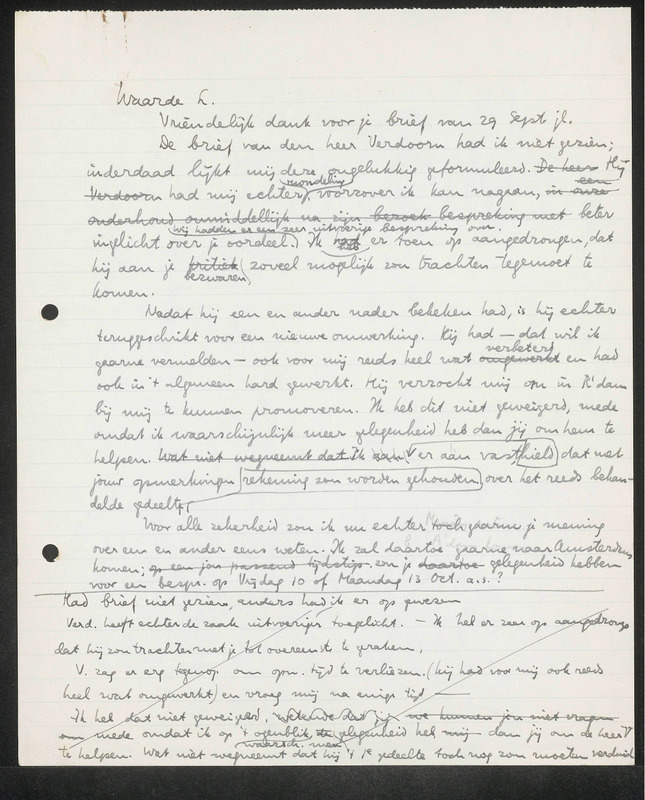 Waarde L.
Vriendelijk dank voor je brief van 29 Sept jl.
De brief van den heer Verdoorn had ik niet gezien;
inderdaad lijkt mij deze ongelukkig geformuleerd. De heer Hij
mondeling een
Verdoorn had mij echter, voorzover ik kan nagaan, in onze
onderhoud onmiddellijk na zijn bezoek bespreking met beter
Wij hadden er een zeer uitvoerige bespreking over.
ingelicht over je oordeel. Ik heb er toen op aangedrongen, dat
hij aan je kritiek zoveel mogelijk zou trachten tegemoet te
bezwaren,
komen.
Nadat hij een en ander nader bekeken had, is hij echter
teruggeschrikt voor een nieuwe omwerking. Hij had — dat wil ik
verbeterd
gaarne vermelden — ook voor mij reeds heel wat omgewerkt en had
ook in 't algemeen hard gewerkt. Hij verzocht mij om in R'dam
bij mij te kunnen promoveren. Ik heb dit niet geweigerd, mede
omdat ik waarschijnlijk meer gelegenheid heb dan jij om hem te
helpen. Wat niet wegneemt dat Ik er aan vasthield dat met
jouw opmerkingen rekening zou worden gehouden over het reeds behan-
delde gedeelte.
Voor alle zekerheid zou ik nu echter toch gaarne je mening
over een en ander eens weten. Ik zal daartoe gaarne naar Amsterdam
komen; op een jou passend tijdstip. zou je daartoe gelegenheid hebben
voor een bespr. op Vrijdag 10 of Maandag 13 Oct. a.s.?
Had brief niet gezien, anders had ik er op gewezen
Verd. heeft echter de zaak uitvoeriger toegelicht. — Ik heb er zeer op aangedrongen
dat hij zou trachten met je tot overeenst. te geraken.
V. zag er erg tegenop om opn. tijd te verliezen. (hij had voor mij ook reeds
heel wat omgewerkt) en vroeg mij na enige tijd —
Ik heb dat niet geweigerd, wetende dat jij we kunnen jou niet vragen
om mede omdat ik op 't ogenblik gelegenheid heb dan jij om de heer V
waarsch. meer
te helpen. Wat niet wegneemt dat hij 't 1e gedeelte toch nog zou moeten